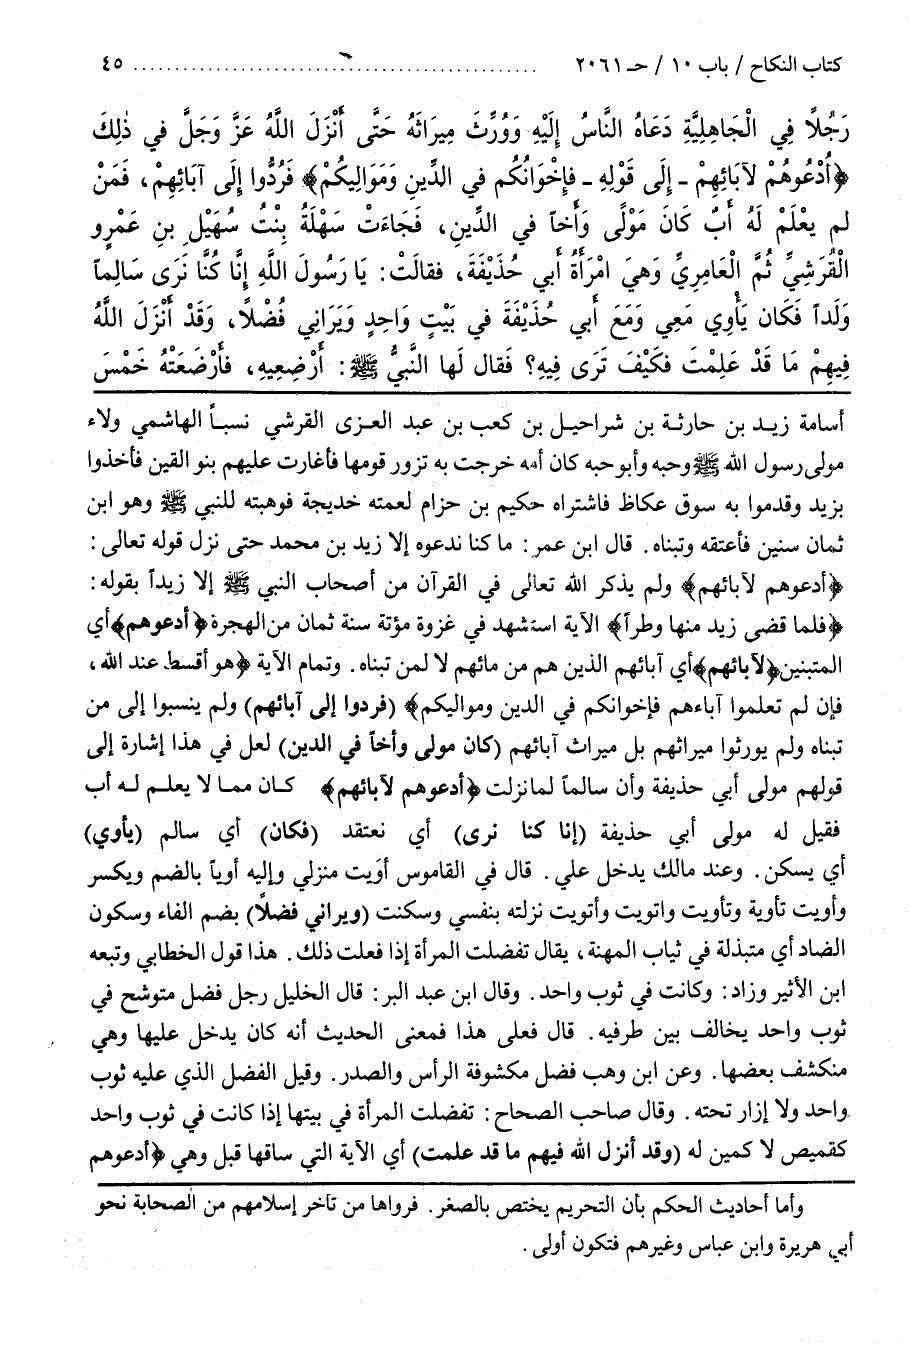 كتاب النكاح / باب ١٠ / حـ ٢٠٦١ ................................................ ٤٥
رَجُلًا فِي الْجَاهِلِيَّةِ دَعَاهُ النَّاسُ إِلَيْهِ وَوُرِّثَ مِيرَاثَهُ حَتَّى أَنْزَلَ اللَّهُ عَزَّ وَجَلَّ في ذٰلِكَ
﴿أُدْعُوهُمْ لآبَائِهِمْ - إِلَى قَوْلِهِ - فإِخْوَانُكُم في الدِّينِ وَمَوَالِيكُمْ﴾ فَرُدُّوا إِلَى آبَائِهِمْ، فَمَنْ
لم يعْلَمْ لَهُ أَبٌ كَانَ مَوْلًى وَأَخاً في الدِّينِ، فَجَاءَتْ سَهْلَةُ بِنْتُ سُهَيْلِ بنِ عَمْرٍو
الْقُرَشِيِّ ثُمَّ الْعَامِرِيِّ وَهِيَ امْرَأَةُ أَبي حُذَيْفَةَ، فقالَتْ: يَا رَسُولَ اللَّهِ إِنَّا كُنَّا نَرَى سَالِماً
وَلَداً فَكَان يَأْوِي مَعِي وَمَعَ أَبي حُذَيْفَةَ في بَيْتٍ وَاحِدٍ وَيَرَانِي فُضْلاً، وَقَدْ أَنْزَلَ اللَّهُ
فِيهِمْ مَا قَدْ عَلِمْتَ فكَيْفَ تَرَى فِيهِ؟ فَقال لَها النَّبيُّ ﷺ: أَرْضِعِيهِ، فأَرْضَعَتْهُ خَمْسَ
أسامة زيد بن حارثة بن شراحيل بن كعب بن عبد العزى القرشي نسباً الهاشمي ولاء
مولى رسول الله ﷺ وحبه وأبو حبه كان أمه خرجت به تزور قومها فأغارت عليهم بنو القين فأخذوا
بزيد وقدموا به سوق عكاظ فاشتراه حكيم بن حزام لعمته خديجة فوهبته للنبي ﷺ وهو ابن
ثمان سنين فأعتقه وتبناه. قال ابن عمر: ما كنا ندعوه إلا زيد بن محمد حتى نزل قوله تعالى:
﴿أدعوهم لآبائهم﴾ ولم يذكر الله تعالى في القرآن من أصحاب النبي ﷺ إلا زيداً بقوله:
﴿فلما قضى زيد منها وطراً﴾ الآية استشهد في غزوة مؤتة سنة ثمان من الهجرة ﴿أدعوهم﴾ أي
المتبنين ﴿لآبائهم﴾ أي آبائهم الذين هم من مائهم لا لمن تبناه. وتمام الآية ﴿هو أقسط عند الله،
فإن لم تعلموا آباءهم فإخوانكم في الدين ومواليكم﴾ (فردوا إلى آبائهم) ولم ينسبوا إلى من
تبناه ولم يورثوا ميراثهم بل ميراث آبائهم (كان مولى وأخاً في الدين) لعل في هذا إشارة إلى
قولهم مولى أبي حذيفة وأن سالماً لما نزلت ﴿أدعوهم لآبائهم﴾ كان مما لا يعلم له أب
فقيل له مولى أبي حذيفة (إنا كنا نرى) أي نعتقد (فكان) أي سالم (يأوي)
أي يسكن. وعند مالك يدخل علي. قال في القاموس أوَيت منزلي وإليه أوياً بالضم ويكسر
وأويت تأوية وتأويت واتويت وأتويت نزلته بنفسي وسكنت (ويراني فضلاً) بضم الفاء وسكون
الضاد أي متبذلة في ثياب المهنة، يقال تفضلت المرأة إذا فعلت ذلك. هذا قول الخطابي وتبعه
ابن الأثير وزاد: وكانت في ثوب واحد. وقال ابن عبد البر: قال الخليل رجل فضل متوشح في
ثوب واحد يخالف بين طرفيه. قال فعلى هذا فمعنى الحديث أنه كان يدخل عليها وهي
منكشف بعضها. وعن ابن وهب فضل مكشوفة الرأس والصدر. وقيل الفضل الذي عليه ثوب
واحد ولا إزار تحته. وقال صاحب الصحاح: تفضلت المرأة في بيتها إذا كانت في ثوب واحد
كقميص لا كمين له (وقد أنزل الله فيهم ما قد علمت) أي الآية التي ساقها قبل وهي ﴿أدعوهم
وأما أحاديث الحكم بأن التحريم يختص بالصغر. فرواها من تأخر إسلامهم من الصحابة نحو
أبي هريرة وابن عباس وغيرهم فتكون أولى.